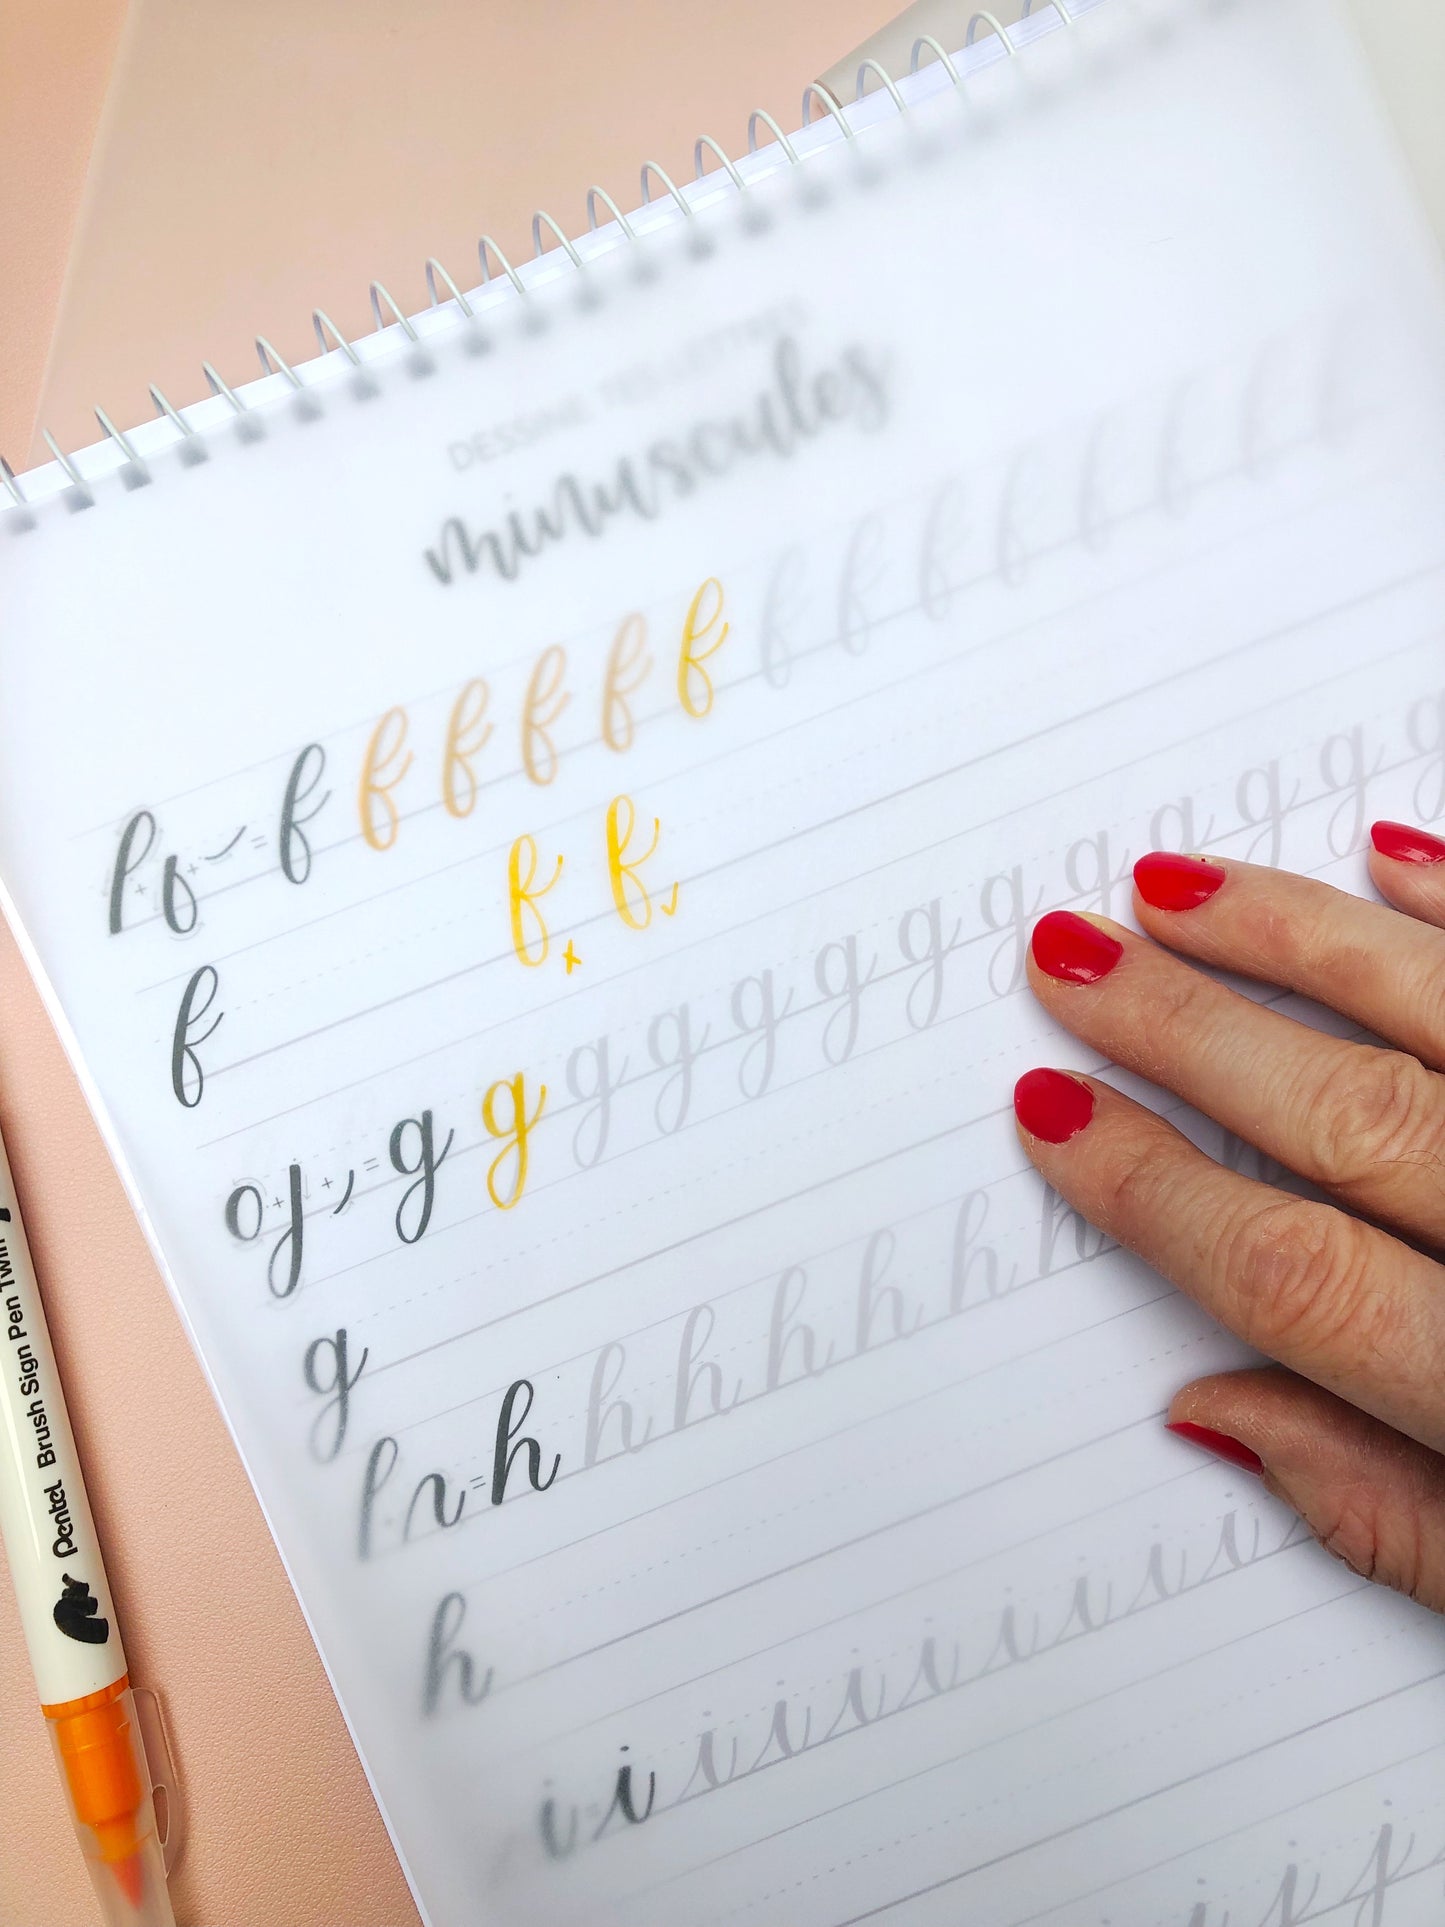 DESSINE TES LETTRES
minuscules
l + o + ⌣ = f f f f f f f f f f f f f f
f f x f ✓
o + j + ⌣ = g g g g g g g g g g g g g
g
l n = h h h h h h h h
h
i = i i i i i i i i i
j j j
Pentel Brush Sign Pen Twin